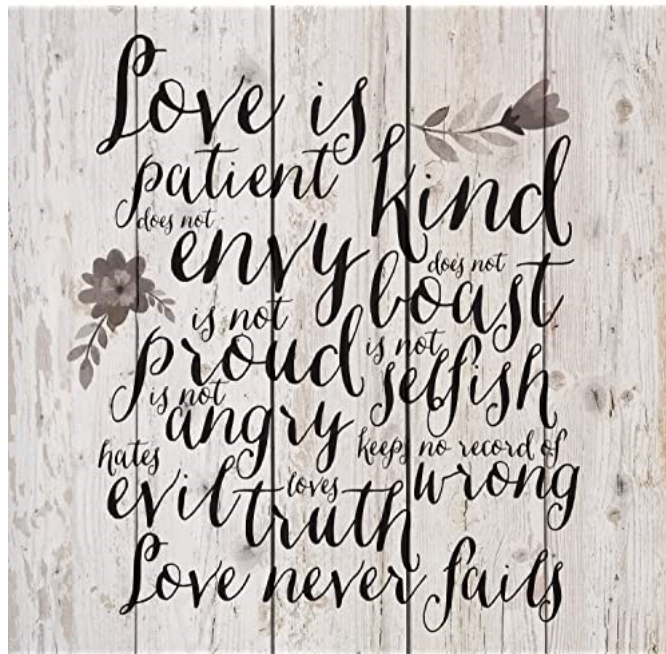 Love is
patient kind
does not envy
does not boast
is not proud
is not selfish
is not angry
keeps no record of wrong
hates evil
loves truth
Love never fails